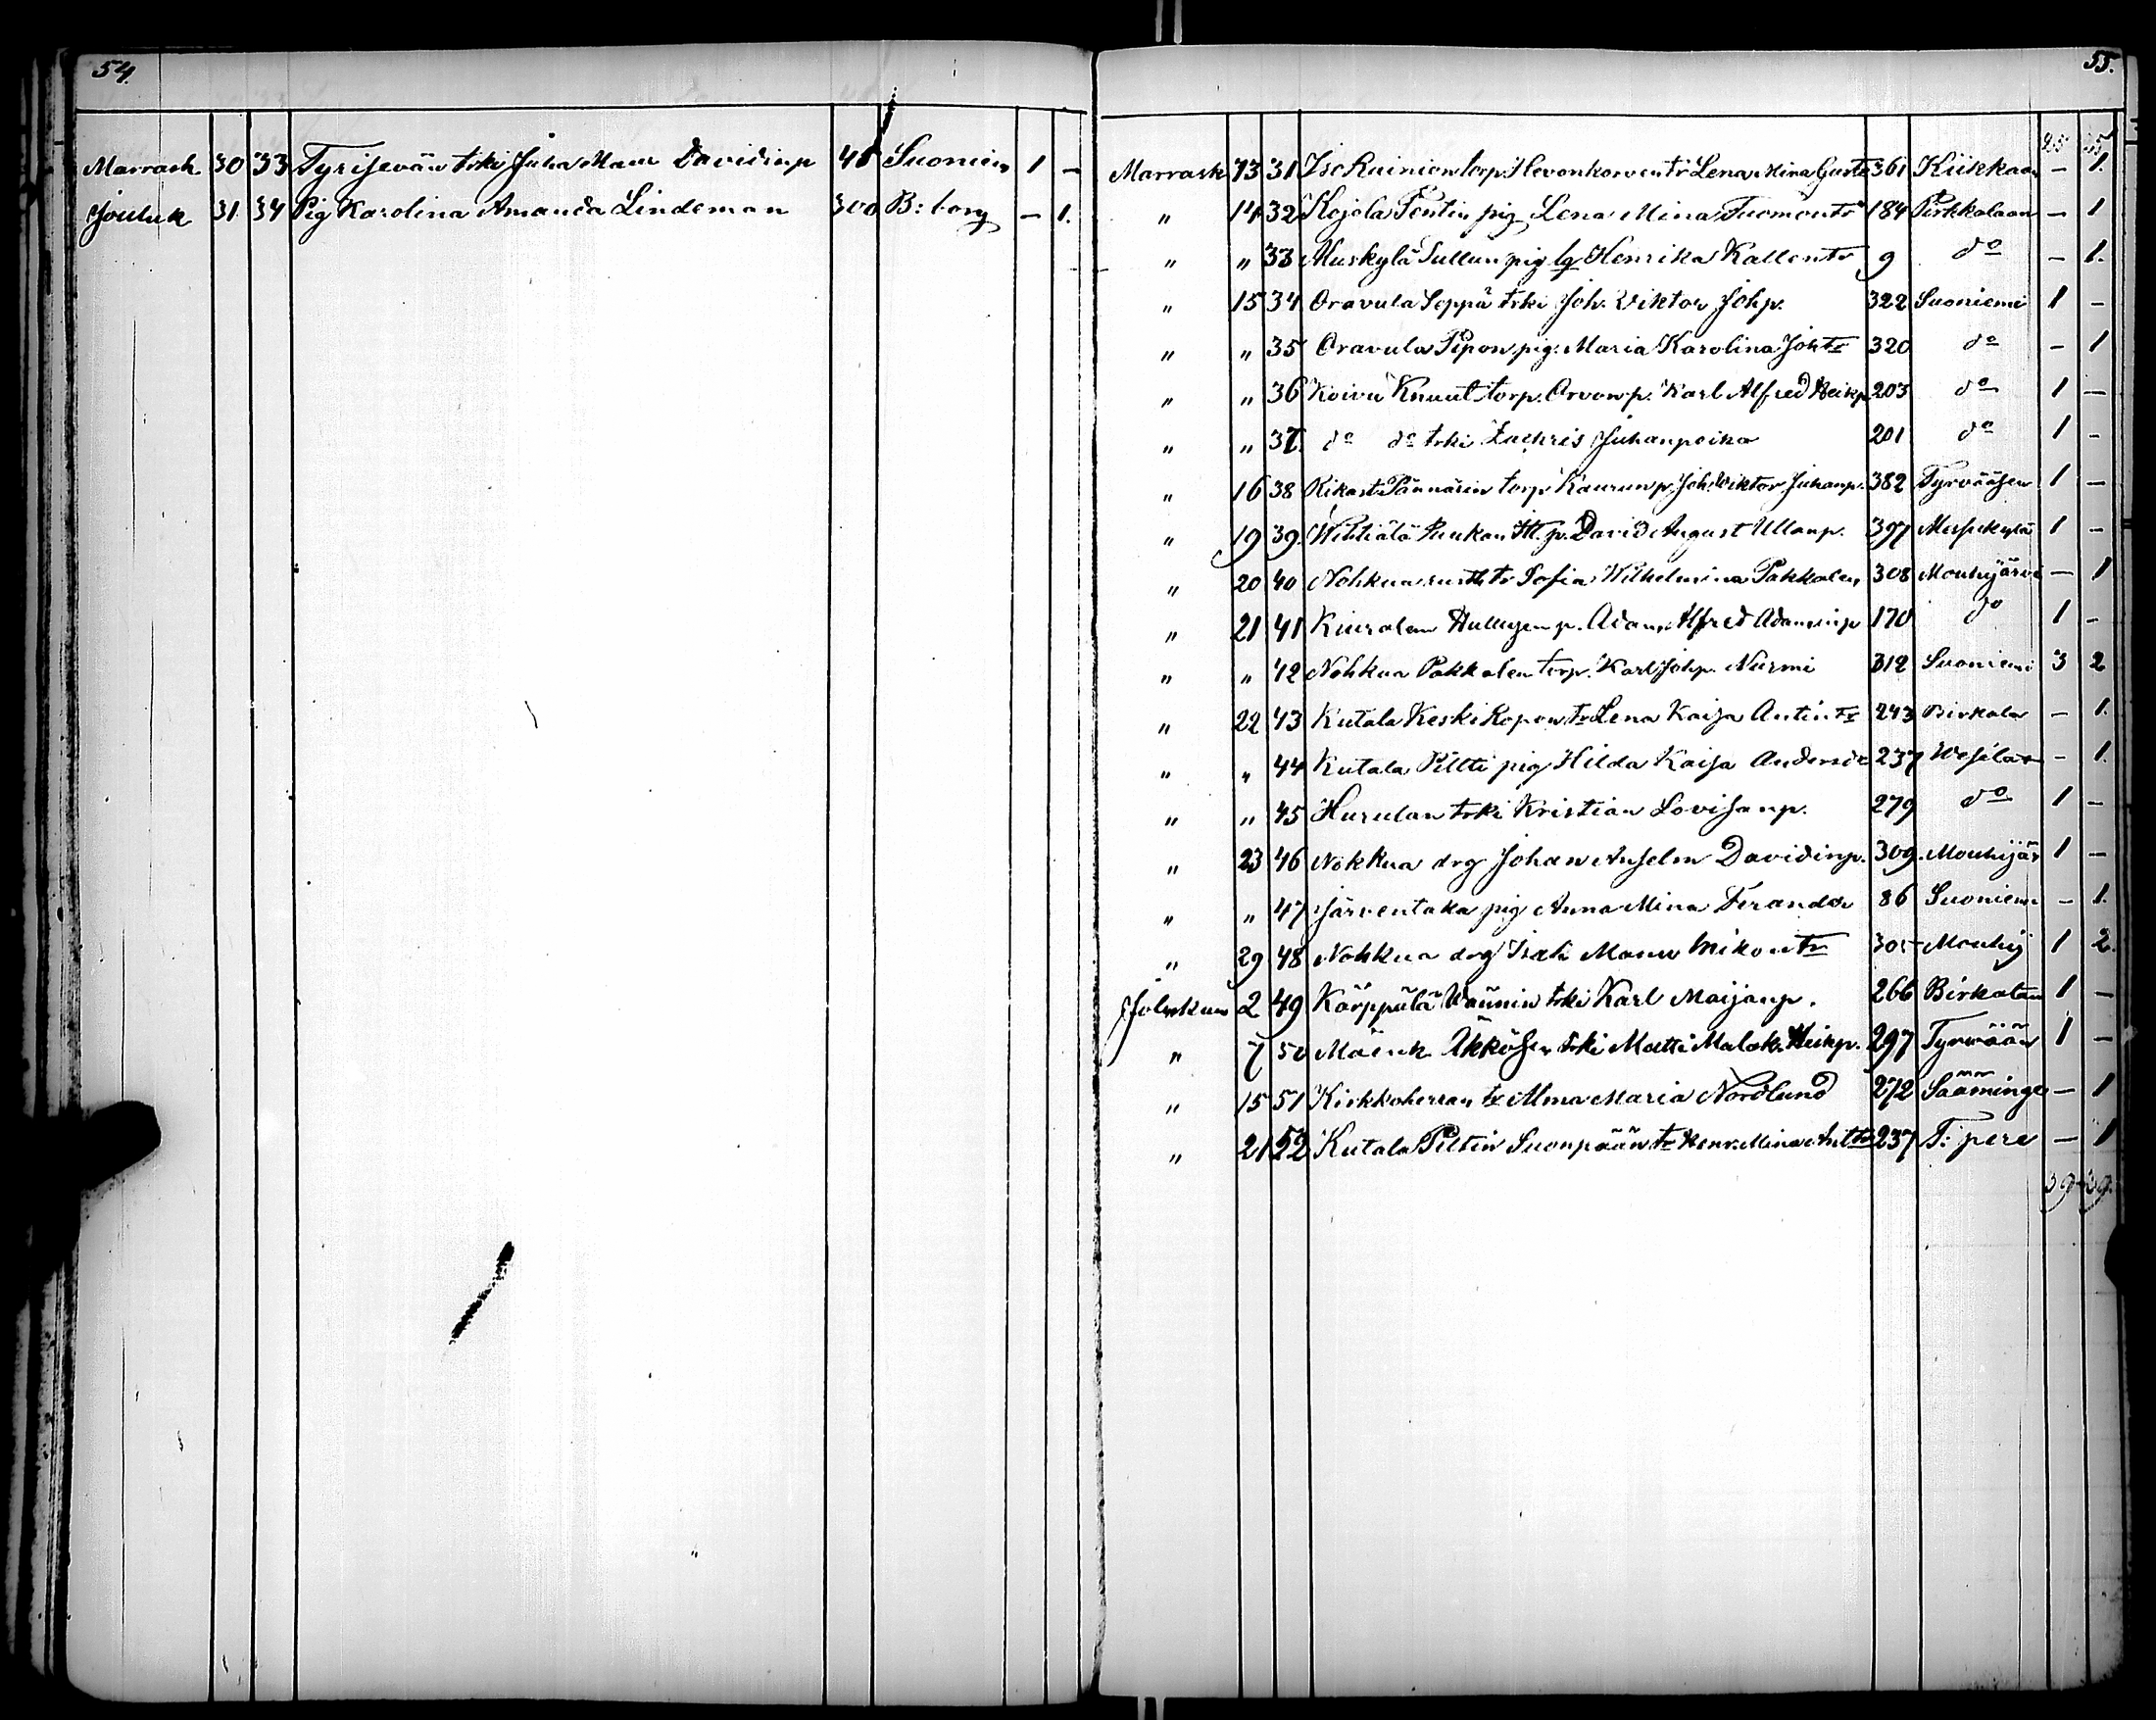 54.
Marrask 30 33 Tyrisevän trki Juha Manu Davidinp 48 Suoniem 1 –
Jouluk 31 34 Pig Karolina Amanda Lindeman 300 B:borg – 1.
55.
25 35
Marrask 13 31 Iso Rainion torp. Hevonkorven tr Lena Mina Gust 361 Kiikkaan – 1.
" 14 32 Kojola Pentin pig Lena Mina Tuomontr 184 Pirkkalaan – 1
" " 33 Muskylä Sullun pig Henrika Kallentr 9 do – 1.
" 15 34 Oravula Seppä trki Joh. Viktor Johp. 322 Suoniemi 1 –
" " 35 Oravula Piponpig. Maria Karolina Johtr 320 do – 1
" " 36 Koivu Knuut torp. Arvonp. Karl Alfred Heikp 203 do 1 –
" " 37. do do trki Zachris Juhanpoika 201 do 1 –
" 16 38 Kikast Pännärin torp Kaurunp. Joh. Viktor Juhanp. 382 Tyrvääsen 1 –
" 19 39. Wihtiälä Ruukan Itl. p. David August Ullanp. 397 Messukylä 1 –
" 20 40 Nohkua rustt tr Sofia Wilhelmina Pakkalen 308 Mouhijärvi – 1
" 21 41 Kiuralan Hullugen p. Adam Alfred Adaminp 170 do 1 –
" " 42 Nohkua Pakkalen torp. Karl Johp. Nurmi 312 Suoniemi 3 2
" 22 43 Kutala Keski Roponotr Lena Kaisa Antintr 243 Birkala – 1.
" " 44 Kutala Piltti pig Hilda Kaisa Andersdr 237 Wesilax – 1.
" " 45 Hurulan trki Kristian Lovisanp. 279 do 1 –
" 23 46 Nokkua drg Johan Anselm Davidinp. 309. Mouhijär 1 –
" " 47 Järventaka pig Anna Mina Ferandr 86 Suoniem – 1.
" 29 48 Nohkua drg Isak Manu Mikontr 305 Mouhij 1 2.
Joluknn 2 49 Kärppälä Waunin trki Karl Maijanp. 266 Birkalan 1 –
" 7 50 Mäenk Äkkösen trki Matti Malak. Heikp. 297 Tyrvään 1 –
" 15 51 Kirkkoherran tr Alma Maria Nordlund 272 Sääminge – 1
" 21 52 Kutala Piltin Suonpään tr Henr. Mina Anttr 237 T:pere – 1
39 39.